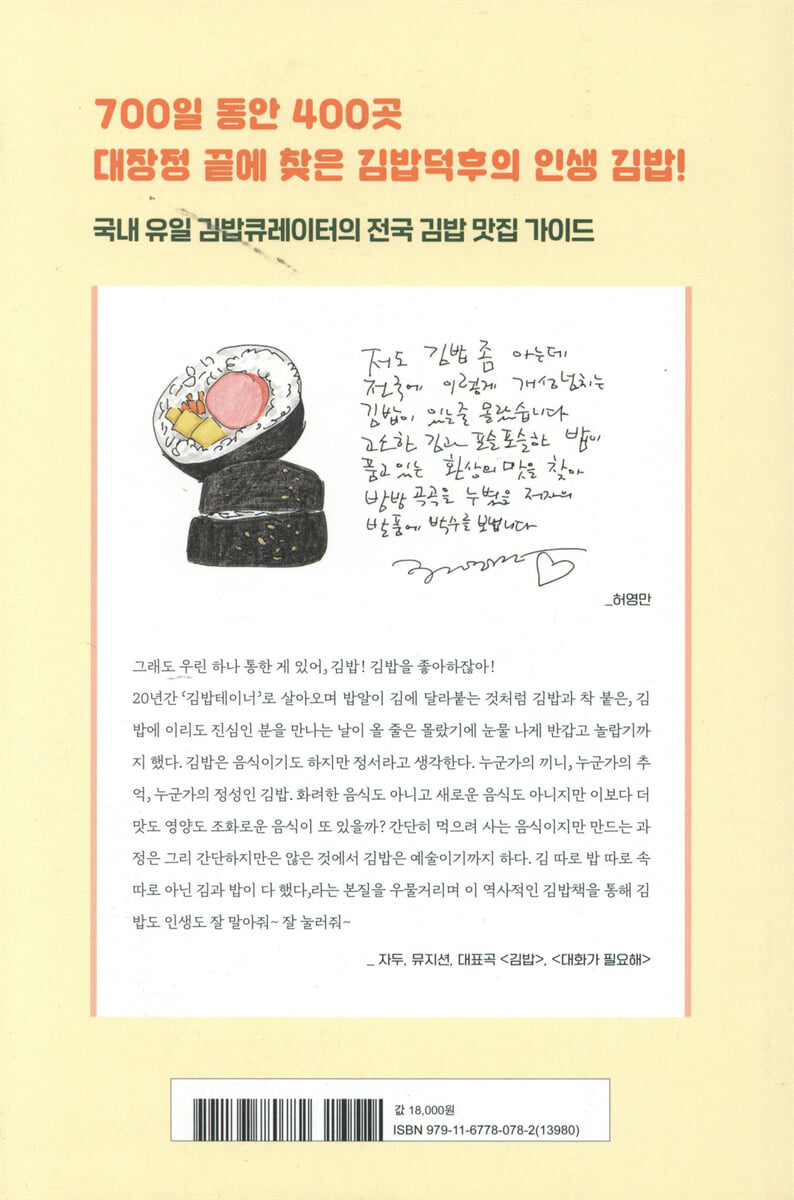 700일 동안 400곳
대장정 끝에 찾은 김밥덕후의 인생 김밥!
국내 유일 김밥큐레이터의 전국 김밥 맛집 가이드
저도 김밥 좀 아는데
전국에 이렇게 개성넘치는
김밥이 있는줄 몰랐습니다
고소한 김과 포슬포슬한 밥이
품고있는 환상의 맛을 찾아
방방곡곡을 누볐을 저자의
발품에 박수를 보냅니다
_허영만
그래도 우린 하나 통한 게 있어, 김밥! 김밥을 좋아하잖아!
20년간 ‘김밥테이너’로 살아오며 밥알이 김에 달라붙는 것처럼 김밥과 착 붙은, 김
밥에 이리도 진심인 분을 만나는 날이 올 줄은 몰랐기에 눈물 나게 반갑고 놀랍기까
지 했다. 김밥은 음식이기도 하지만 정서라고 생각한다. 누군가의 끼니, 누군가의 추
억, 누군가의 정성인 김밥. 화려한 음식도 아니고 새로운 음식도 아니지만 이보다 더
맛도 영양도 조화로운 음식이 또 있을까? 간단히 먹으려 사는 음식이지만 만드는 과
정은 그리 간단하지만은 않은 것에서 김밥은 예술이기까지 하다. 김 따로 밥 따로 속
따로 아닌 김과 밥이 다 했다,라는 본질을 우물거리며 이 역사적인 김밥책을 통해 김
밥도 인생도 잘 말아줘~ 잘 눌러줘~
_ 자두, 뮤지션, 대표곡 <김밥>, <대화가 필요해>
값 18,000원
ISBN 979-11-6778-078-2(13980)